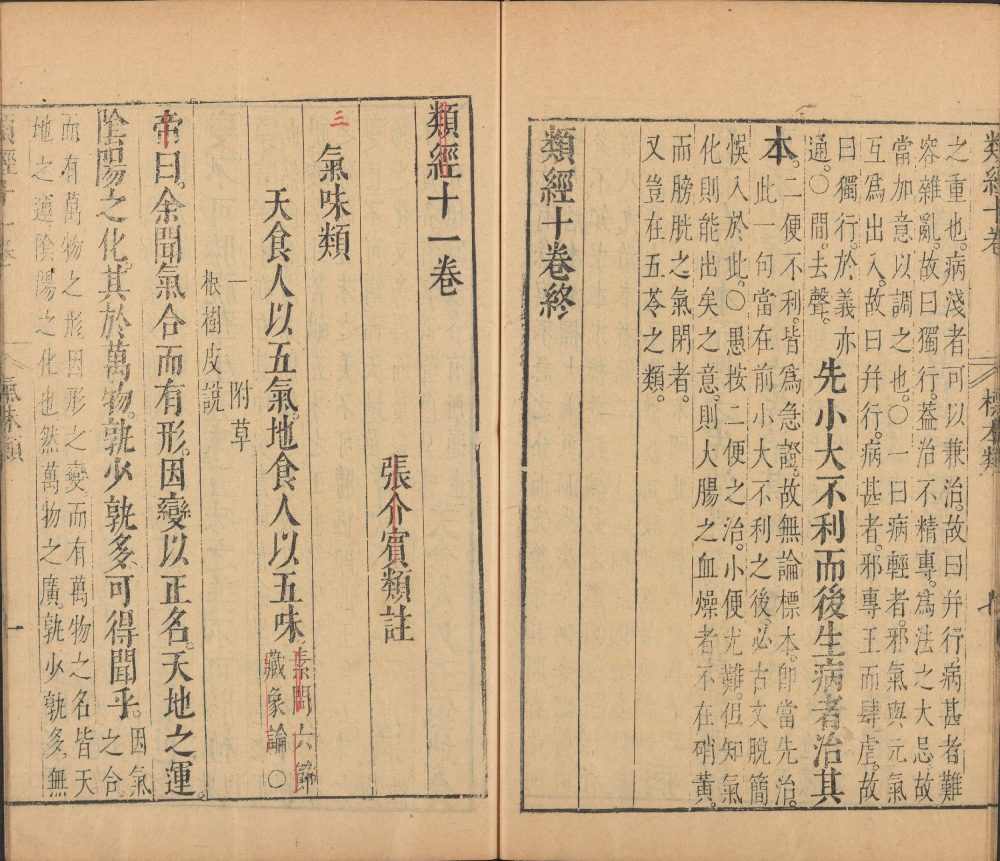 類經十卷 標本類
之重也。病淺者可以兼治。故曰并行。病甚者難
容雜亂。故曰獨行。葢治不精專。爲法之大忌。故
當加意以調之也。○一曰病輕者。邪氣與元氣
互爲出入。故曰并行。病甚者。邪專王而肆虐。故
曰獨行。於義亦
通。○間。去聲。先小大不利而後生病者治其
本。二便不利。皆爲急證。故無論標本。卽當先治。
此一句當在前小大不利之後。必古文脫簡
悞入於此。○愚按二便之治。小便尤難。但知氣
化則能出矣之意。則大腸之血燥者不在硝黃。
而膀胱之氣閉者。
又豈在五苓之類。
類經十卷終
類經十一卷
張介賓類註
三
氣味類
天食人以五氣。地食人以五味 素問六節
藏象論○
一 附草
根樹皮說
帝曰。余聞氣合而有形。因變以正名。天地之運。
陰陽之化。其於萬物。孰少孰多。可得聞乎。因氣
之合
而有萬物之形。因形之變而有萬物之名。皆天
地之運陰陽之化也。然萬物之廣。孰少孰多。無
類經十一卷 氣味類 一